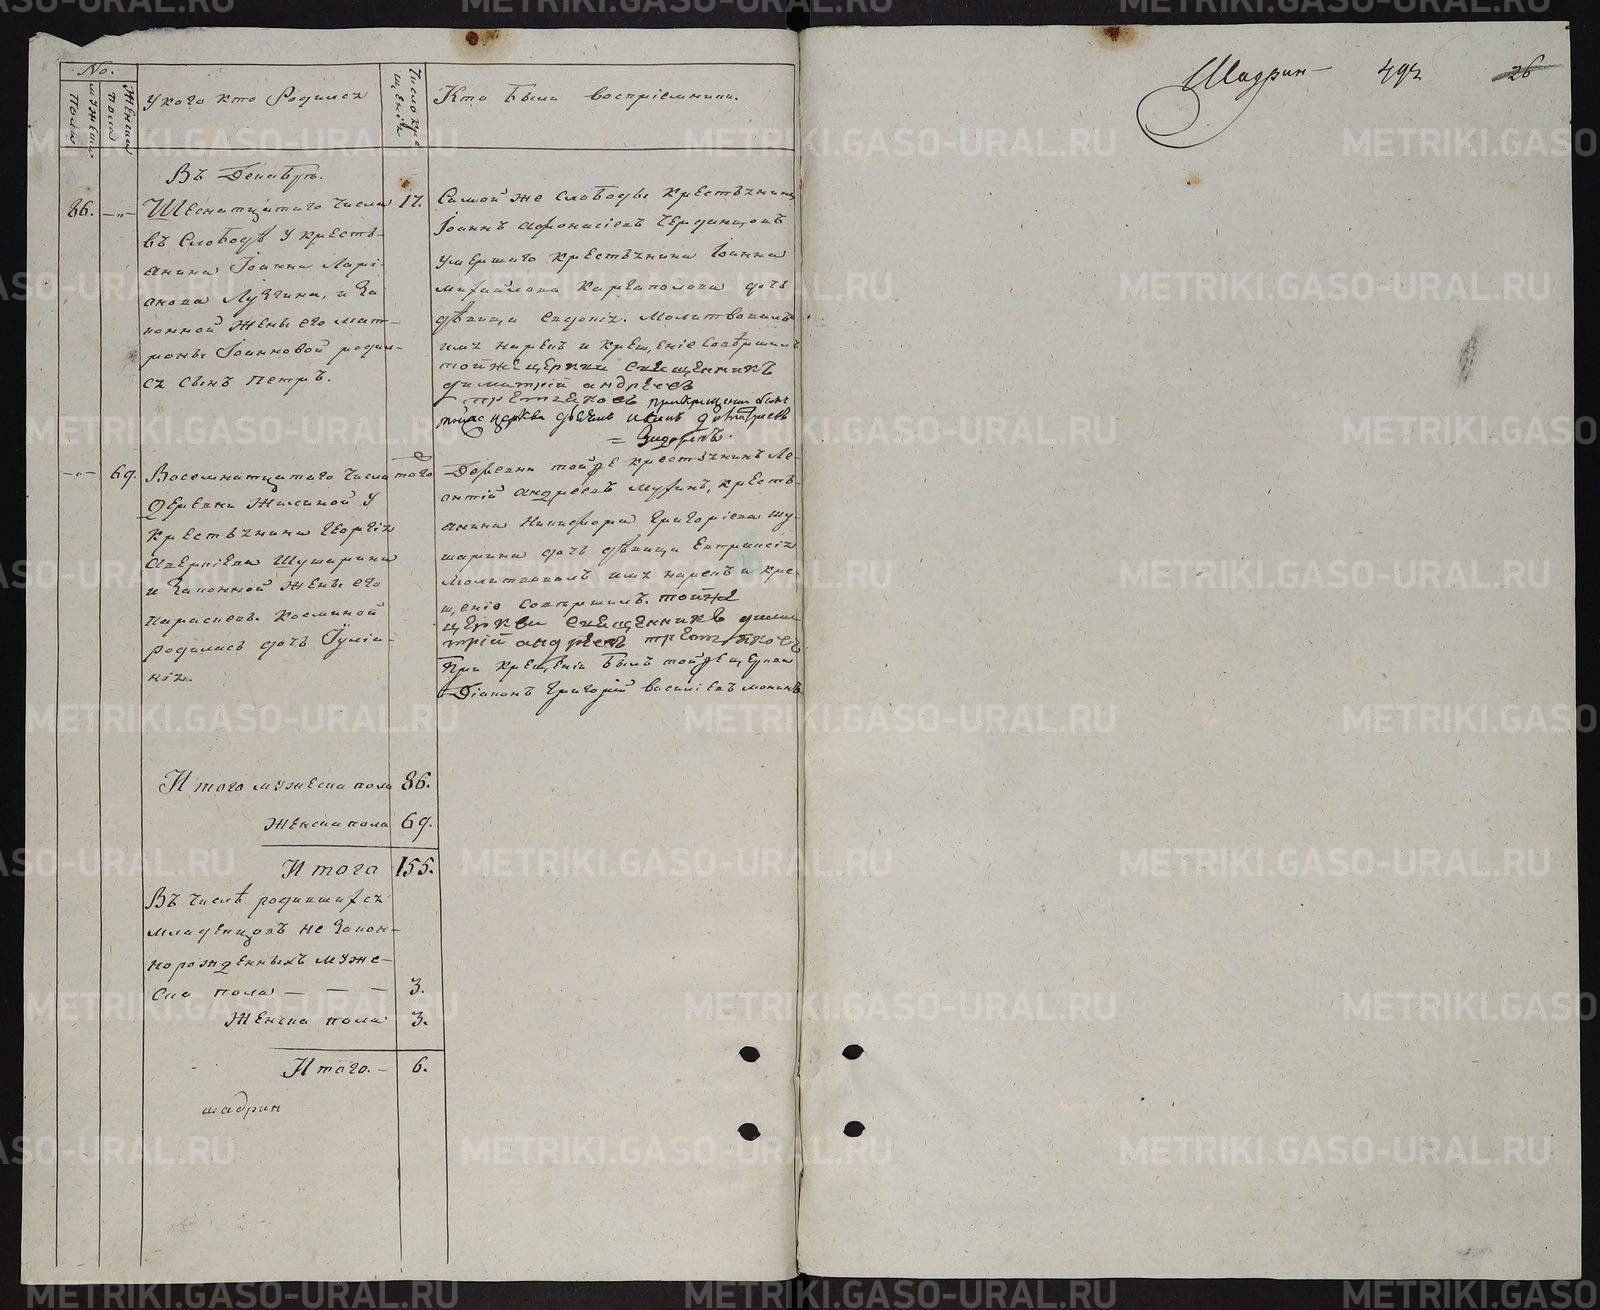 No.
Мужеска Пола
Женска пола
У кого кто Родился
Число крещенія
Кто были воспріемники.
Въ Декабрѣ.
86. —„—
Шеснатцатаго числа
въ Слободѣ у кресть-
янина Іоанна Ларі-
онова Лузгина, и за
конной жены его Мат-
роны Іоанновой родил-
ся сынъ Петръ.
17.
Самой же слободы крестьянинъ
Іоаннъ Афонасіевъ
умершаго крестьянина Іоанна
Михайлова Карпаполова дочь
дѣвица Евдокія. Молитвовалъ
имя нарекъ и крещеніе совершилъ
той же церкви священникъ
Димитрій Андреевъ
Третьяковъ при крещеніи былъ
тойже церкви
—„— 69.
Восемнатцатаго числа
Деревни Жилиной у
крестьянина Георгія
Аверкіева Шушарина
и законной жены его
Параскевы Косминой
родилась дочь Іуліа-
нія.
того
Деревни той же крестьянинъ Ле-
онтій Андреевъ Мухинъ, кресть-
янина Никифора Григоріева Шу-
шарина дочь дѣвица Евпраксія
молитвовалъ имя нарекъ и кре-
щеніе совершилъ тойже
церкви священникъ Дими
трій Андреевъ Третьяковъ
При крещеніи былъ той же церкви
Діаконъ Григорій Васильевъ
Итого мужеска пола 86.
Женска пола 69.
Итого 155.
Въ числѣ родившихся
младенцовъ не закон-
норожденныхъ муже-
ска пола — — — 3.
Женска пола 3.
Итого. — 6.
шадрин
Шадрин 492 26
METRIKI.GASO-URAL.RU